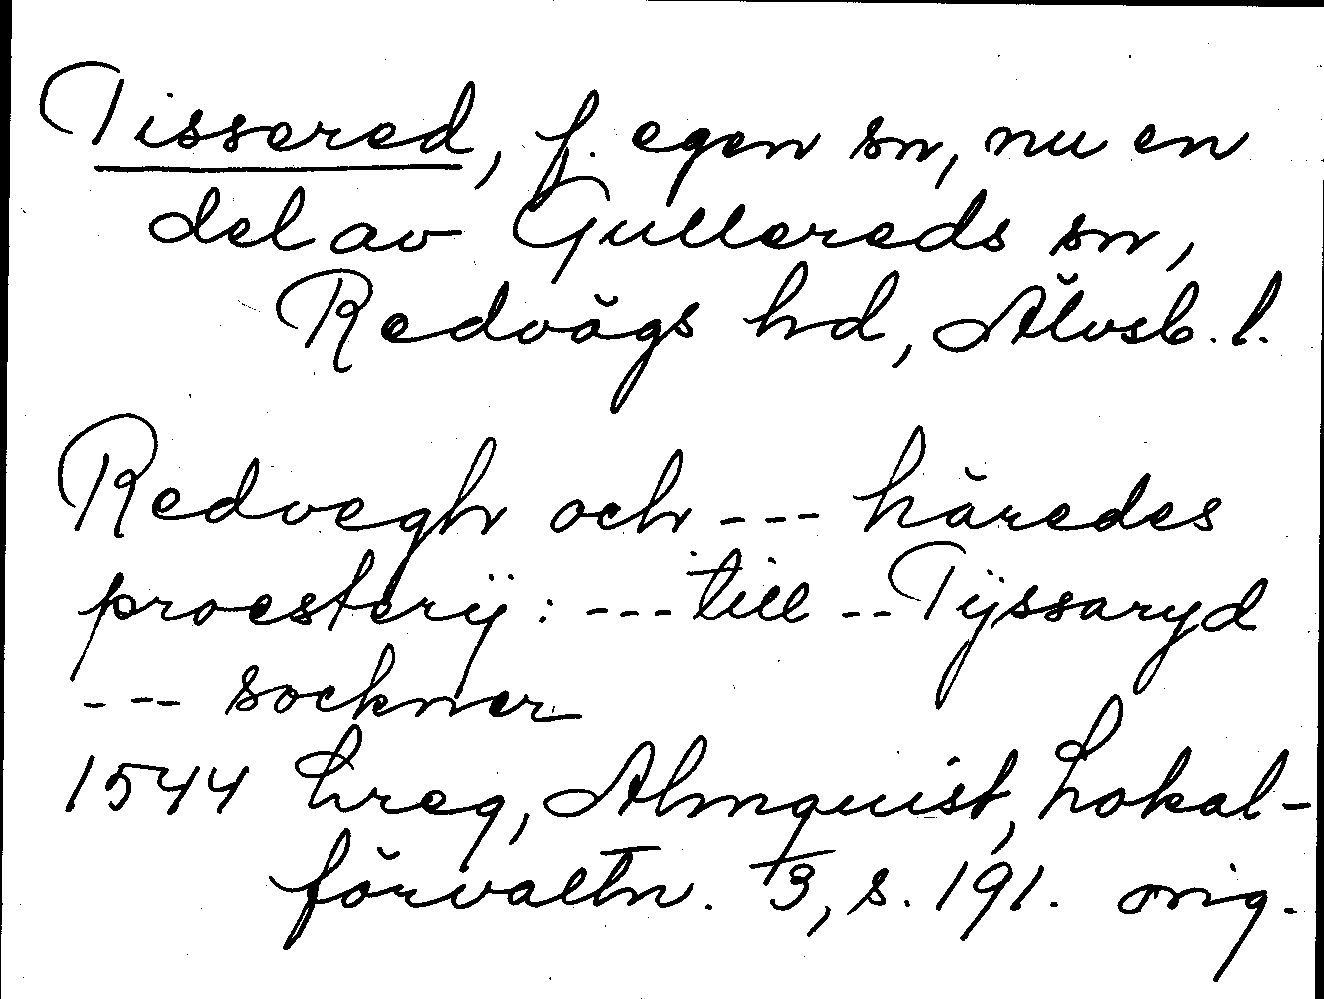 Tissered, f. egen sn, nu en
del av Gullereds sn,
Redvägs hd, Älvsb. l.
Redvegh och --- häredes
proesterÿ: --- till -- Tÿssaryd
--- sockner
1544 Lreg, Almquist, Lokal-
förvaltn. 3, s. 191. orig.